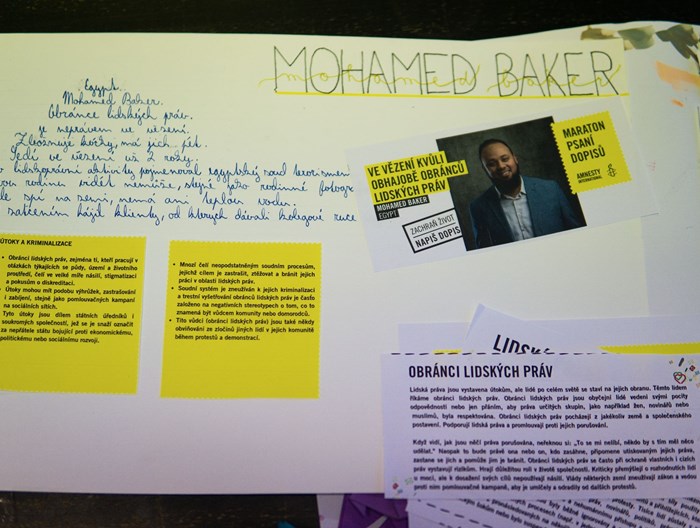 MOHAMED BAKER
mohamed baker
Egypt
Mohamed Baker.
Obránce lidských práv.
je neprávem ve vězení.
Zbožňuje kočky, má jich pět.
Sedí ve vězení už 2 roky.
lidskoprávní aktivity pojmenoval egyptský soud terorismem
rodinu vidět nemůže, stejně jako rodinné fotogr
spí na zemi, nemá ani teplou vodu.
zatčením hájil klienty, od kterých dávali kolegové ruce
VE VĚZENÍ KVŮLI
OBHAJOBĚ OBRÁNCŮ
LIDSKÝCH PRÁV
MOHAMED BAKER
EGYPT
ZACHRAŇ ŽIVOT
NAPIŠ DOPIS
MARATON
PSANÍ
DOPISŮ
AMNESTY
INTERNATIONAL
ÚTOKY A KRIMINALIZACE
• Obránci lidských práv, zejména ti, kteří pracují v
otázkách týkajících se půdy, území a životního
prostředí, čelí ve velké míře násilí, stigmatizaci
a pokusům o diskreditaci.
• Útoky mohou mít podobu výhrůžek, zastrašování
i zabíjení, stejně jako pomlouvačných kampaní
na sociálních sítích.
Tyto útoky jsou dílem státních úředníků i
soukromých společností, jež se je snaží označit
za nepřátele státu bojující proti ekonomickému,
politickému nebo sociálnímu rozvoji.
• Mnozí čelí neopodstatněným soudním procesům,
jejichž cílem je zastrašit, ztěžovat a bránit jejich
práci v oblasti lidských práv.
• Soudní systém je zneužíván k jejich kriminalizaci
a trestní vyšetřování obránců lidských práv je často
založeno na negativních stereotypech o tom, co to
znamená být vůdcem komunity nebo domorodců.
• Tito vůdci (obránci lidských práv) jsou také někdy
obviňováni ze zločinů jiných lidí v jejich komunitě
během protestů a demonstrací.
LIDSK
OBRÁNCI LIDSKÝCH PRÁV
Lidská práva jsou vystavena útokům, ale lidé po celém světě se staví na jejich obranu. Těmto lidem
říkáme obránci lidských práv. Obránci lidských práv jsou obyčejní lidé vedení svými pocity
odpovědnosti nebo jen přáním, aby práva určitých skupin, jako například žen, novinářů nebo
muslimů, byla respektována. Obránci lidských práv pocházejí z jakékoliv země a společenského
postavení. Podporují lidská práva a promlouvají proti jejich porušování.
Když vidí, jak jsou něčí práva porušována, neřeknou si: „To se mi nelíbí, někdo by s tím měl něco
udělat." Naopak to bude právě ona nebo on, kdo zasáhne, připomene utiskovaným jejich práva,
zastane se jich a pomůže jim je bránit. Obránci lidských práv se často při ochraně vlastních i cizích
práv vystavují rizikům. Hrají důležitou roli v životě společnosti. Kriticky přemýšlejí o rozhodnutích lidí
u moci, ale k dosažení svých cílů nepoužívají násilí. Vlády některých zemí zneužívají zákon a vedou
proti nim pomlouvačné kampaně, aby je umlčely a odradily od dalších protestů.